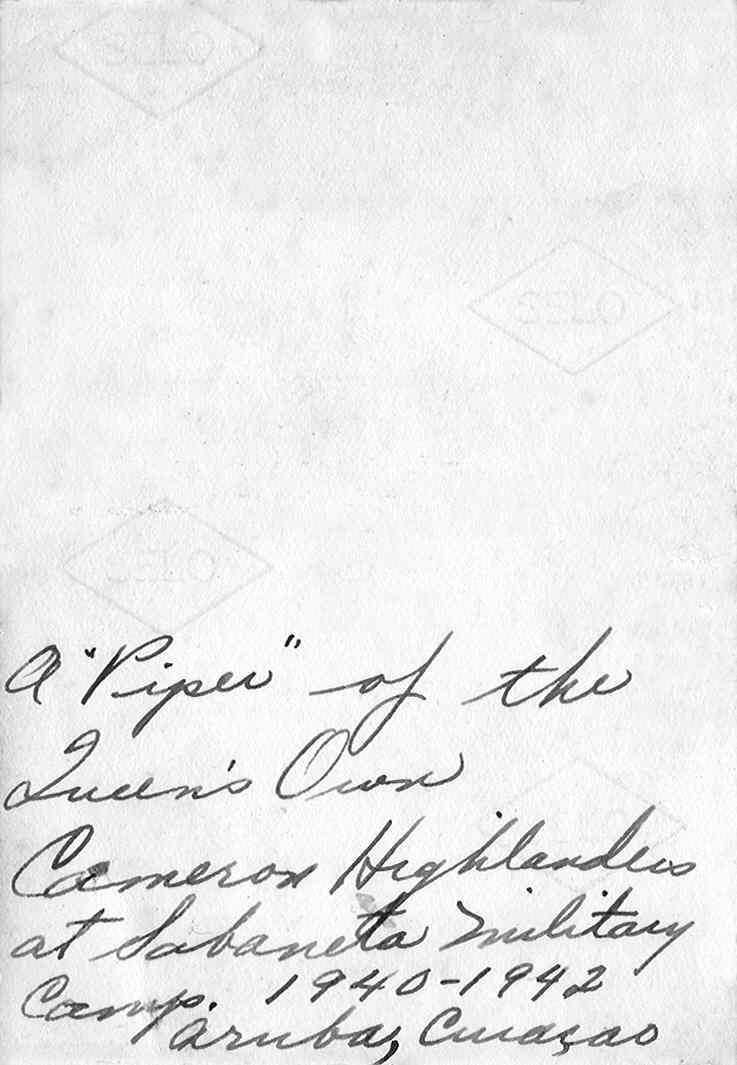 SELO
SELO
SELO
A "Piper" of the
Queen's Own
Cameron Highlanders
at Sabaneta Military
Camp. 1940-1942
Aruba, Curaçao